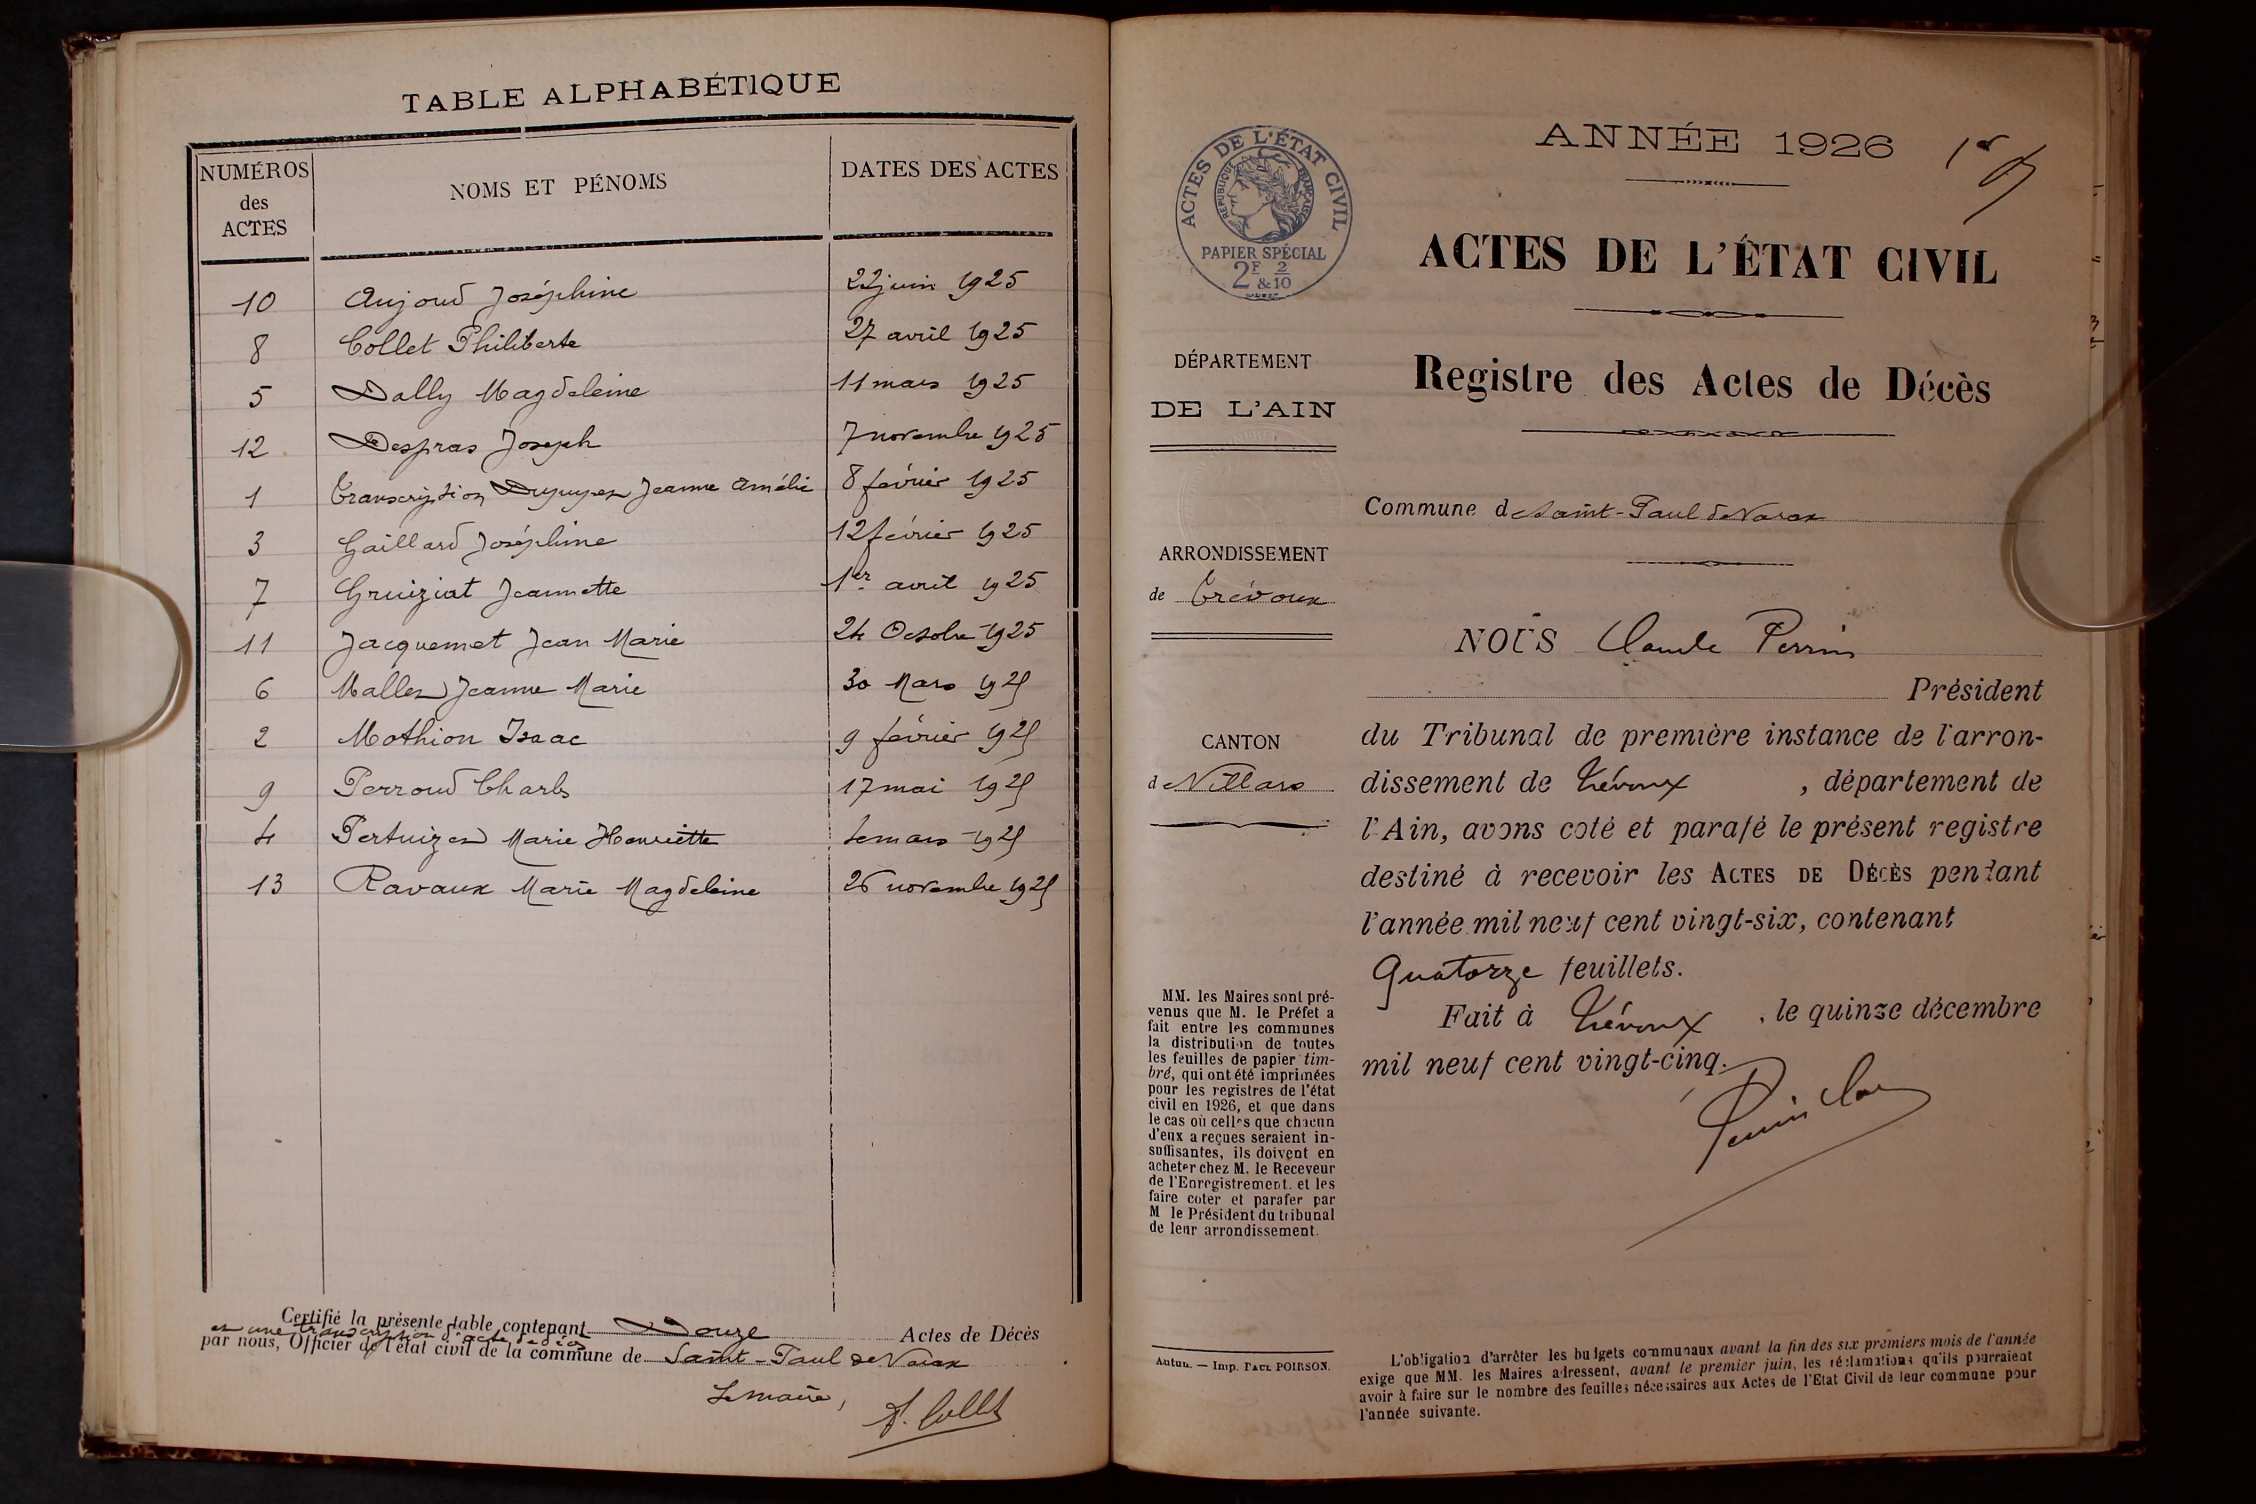 TABLE ALPHABÉTIQUE
NUMÉROS des ACTES
NOMS ET PÉNOMS
DATES DES ACTES
10 Anjoud Joséphine 22 juin 1925
8 Collet Philiberte 27 avril 1925
5 Dally Magdeleine 11 mars 1925
12 Despras Joseph 7 novembre 1925
1 Transcription Jeanne Amélie 8 février 1925
3 Gaillard Joséphine 12 février 1925
7 Gruiziat Jeannette 1er avril 1925
11 Jacquemet Jean Marie 24 Octobre 1925
6 Mallen Jeanne Marie 30 Mars 1925
2 Mothion Isaac 9 février 1925
9 Perroud Charles 17 mai 1925
4 Pertuizen Marie Henriette 4 mars 1925
13 Ravaux Marie Magdeleine 26 novembre 1925
Certifié la présente table contenant Douze Actes de Décès
et une transcription d'acte de décès
par nous, Officier de l'état civil de la commune de Saint-Paul de Varax
Le maire,
Collet
ACTES DE L'ÉTAT CIVIL
RÉPUBLIQUE FRANÇAISE
PAPIER SPÉCIAL
2F & 2/10
DÉPARTEMENT
DE L'AIN
ARRONDISSEMENT
de Trévoux
CANTON
de Villars
MM. les Maires sont pré-
venus que M. le Préfet a
fait entre les communes
la distribution de toutes
les feuilles de papier tim-
bré, qui ont été imprimées
pour les registres de l'état
civil en 1926, et que dans
le cas où celles que chacun
d'eux a reçues seraient in-
suffisantes, ils doivent en
acheter chez M. le Receveur
de l'Enregistrement. et les
faire coter et parafer par
M le Président du tribunal
de leur arrondissement.
Autun. — Imp. PAUL POIRSON.
ANNÉE 1926
1er
ACTES DE L'ÉTAT CIVIL
Registre des Actes de Décès
Commune de Saint-Paul de Varax
NOUS Claude Perrin
Président
du Tribunal de première instance de l'arron-
dissement de Trévoux , département de
l'Ain, avons coté et parafé le présent registre
destiné à recevoir les ACTES DE DÉCÈS pendant
l'année mil neuf cent vingt-six, contenant
Quatorze feuillets.
Fait à Trévoux , le quinze décembre
mil neuf cent vingt-cinq.
L'obligation d'arrêter les budgets communaux avant la fin des six premiers mois de l'année
exige que MM. les Maires adressent, avant le premier juin, les réclamations qu'ils pourraient
avoir à faire sur le nombre des feuilles nécessaires aux Actes de l'Etat Civil de leur commune pour
l'année suivante.